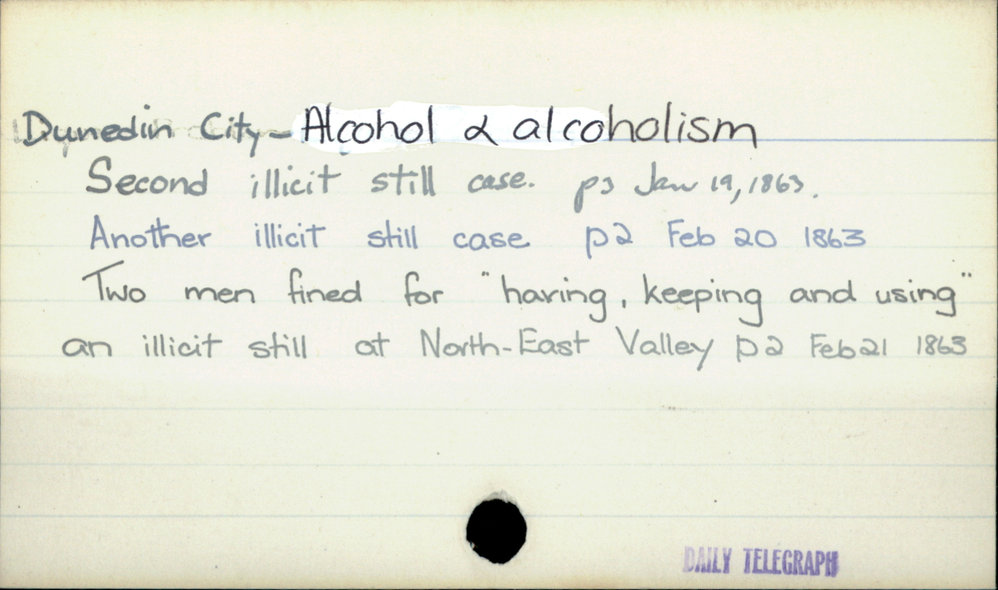 Dunedin City - Alcohol & alcoholism
Second illicit still case. p3 Jan 19, 1863.
Another illicit still case p2 Feb 20 1863
Two men fined for "having, keeping and using"
an illicit still at North-East Valley p2 Feb 21 1863
DAILY TELEGRAPH